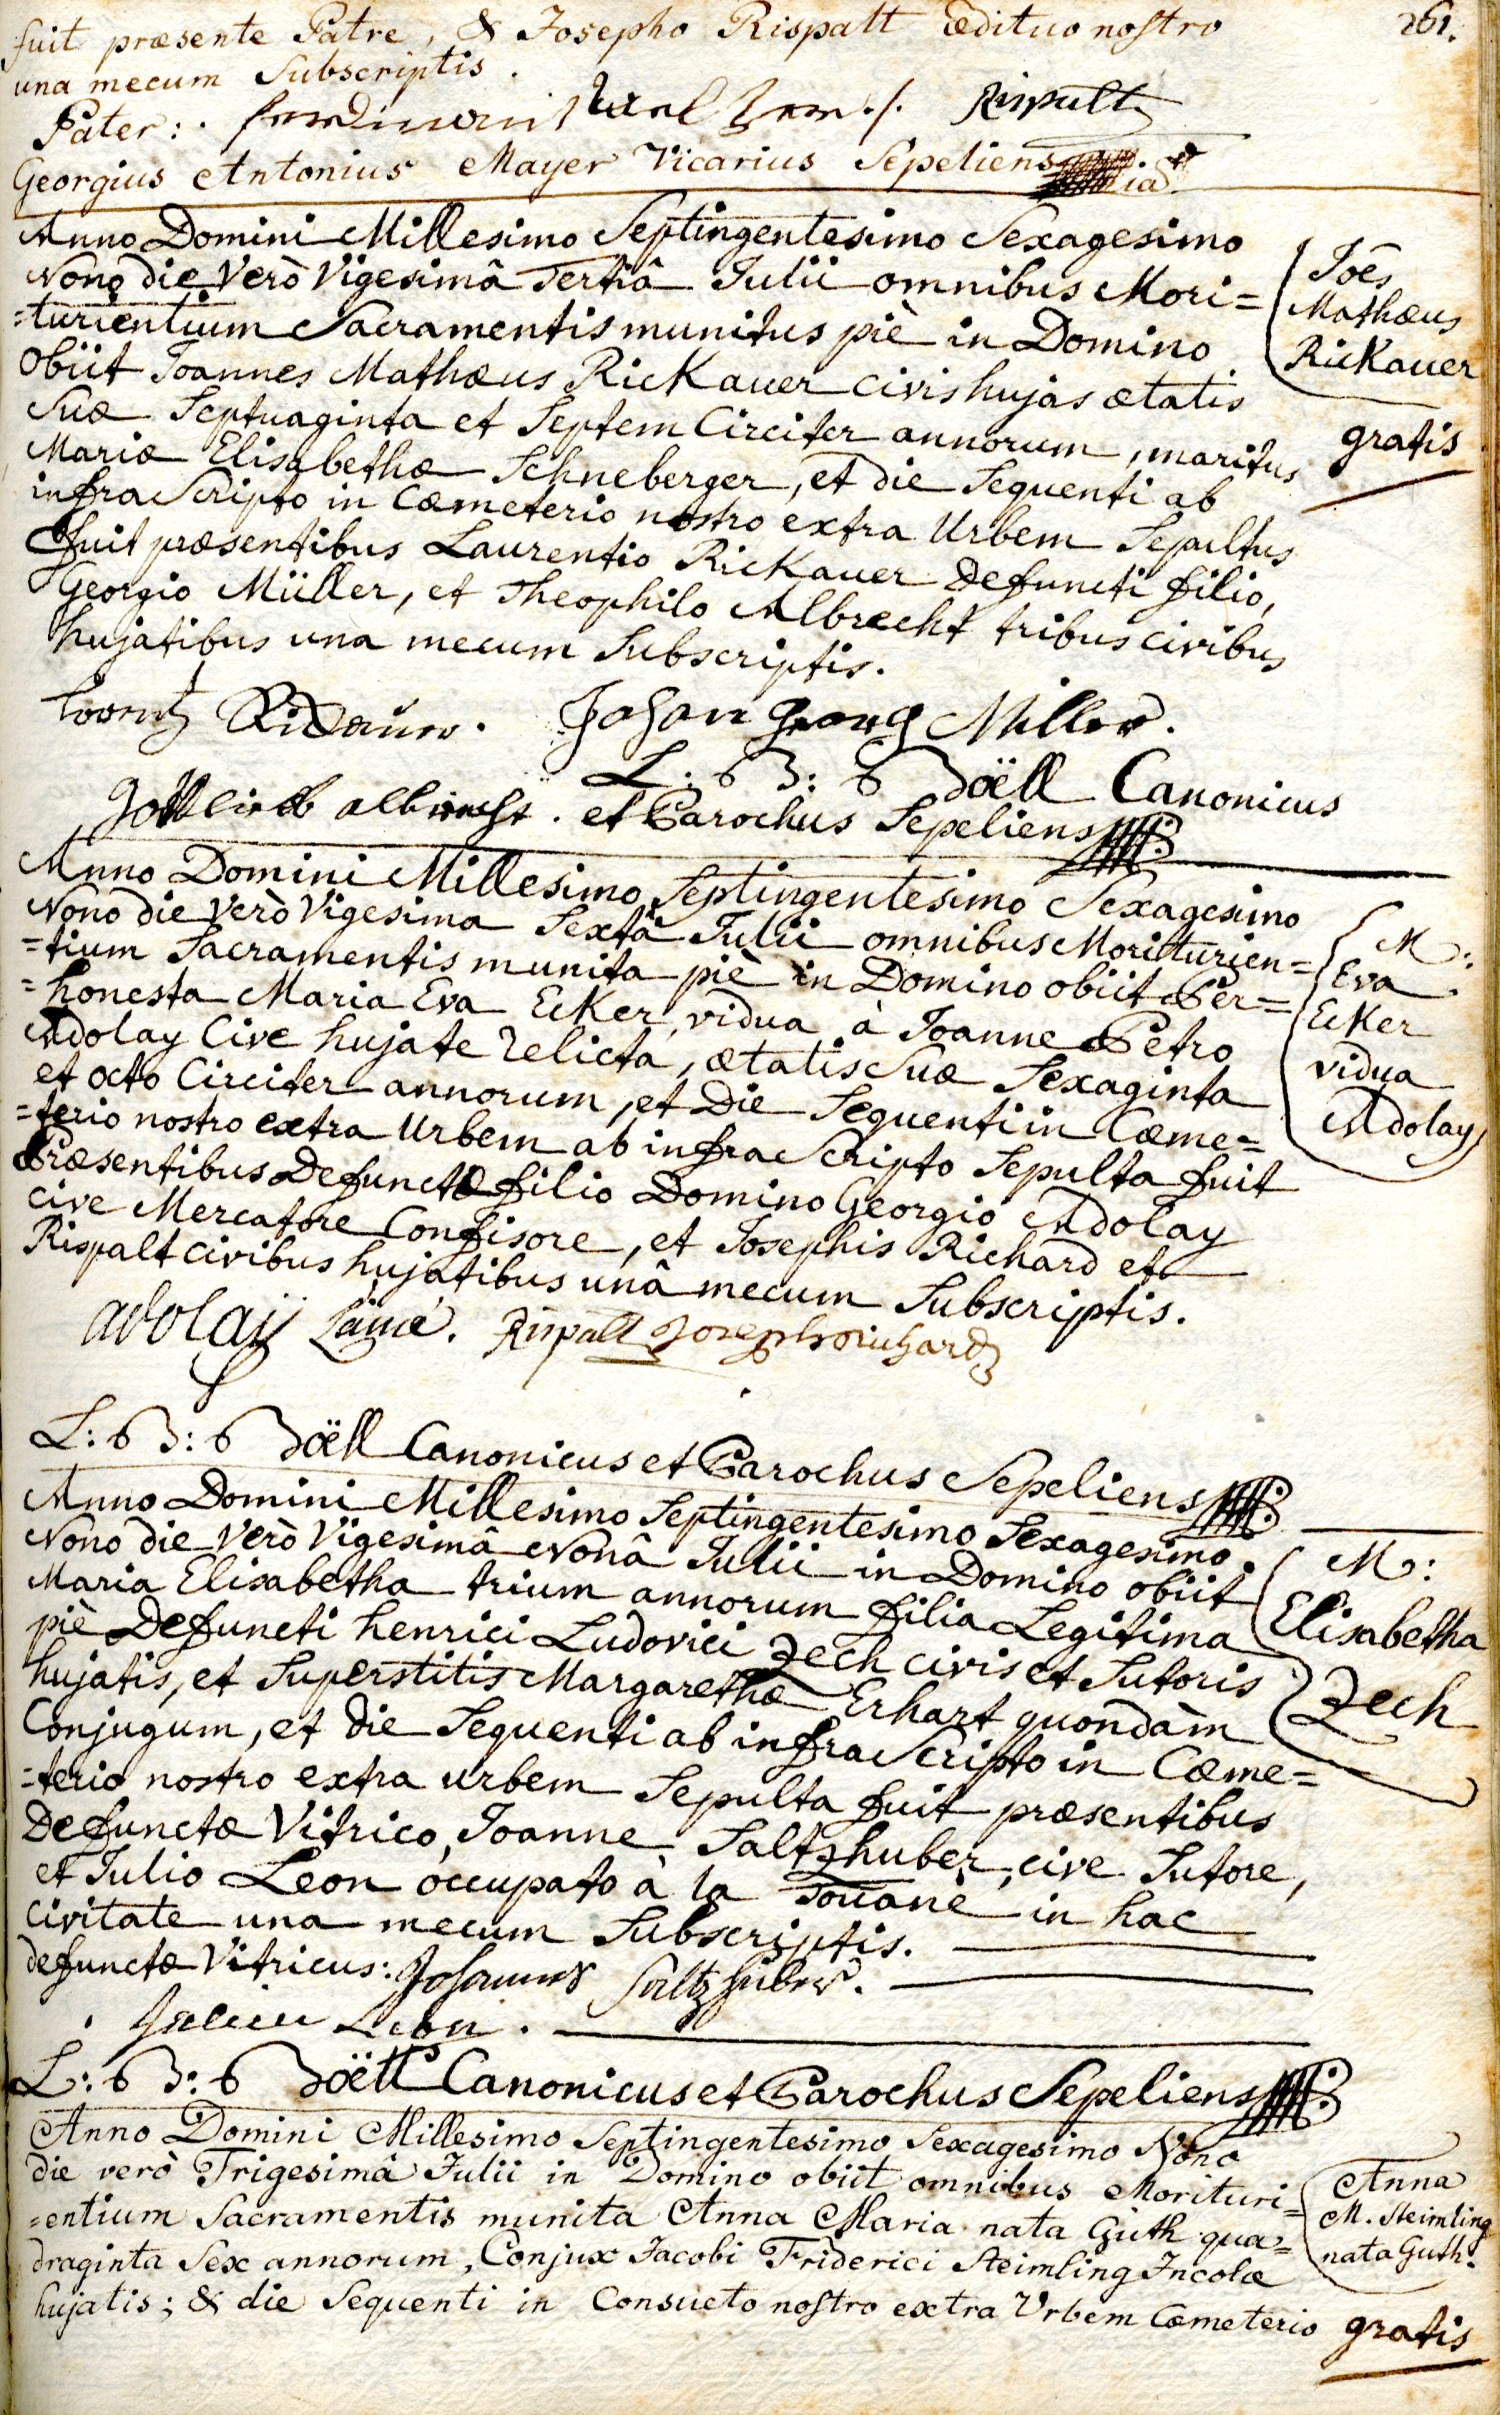 261.
fuit præsente Patre, & Josepho Rispalt ædituo nostro
una mecum Subscriptis.
Pater: Rispalt
Georgius Antonius Mayer Vicarius Sepeliens
Anno Domini Millesimo Septingentesimo Sexagesimo
Nono die Verò Vigesimâ Tertiâ Julii omnibus Mori=
=turientium Sacramentis munitus piè in Domino
Obiit Joannes Mathæus Rickauer civis hujas ætatis
Suæ Septuaginta et Septem Circiter annorum, maritus
Mariæ Elisabethæ Schneberger, et die Sequenti ab
infra Scripto in Cæmeterio nostro extra Urbem Sepultus
fuit præsentibus Laurentio Rickauer Defuncti filio,
Georgio Müller, et Theophilo Albrecht tribus civibus
hujatibus una mecum Subscriptis.
Joes
Mathæus
Rickauer
gratis
Johan Georg Miller.
L: B: Boëll Canonicus
Gottlieb albrecht. et Parochus Sepeliens
Anno Domini Millesimo Septingentesimo Sexagesimo
Nono die Verò Vigesima Sextâ Julii omnibus Moritturien=
=tium Sacramentis munita piè in Domino obiit Per=
=honesta Maria Eva Ecker, vidua à Joanne Petro
Adolay Cive hujate relicta, ætatis Suæ Sexaginta
et octo Circiter annorum, et Die Sequenti in Cæme=
=terio nostro extra Urbem ab infra Scripto Sepulta fuit
Præsentibus Defunctæ filio Domino Georgio Adolay
cive Mercatore Confisore, et Josephis Richard et
Rispalt civibus hujatibus unâ mecum Subscriptis.
M:
Eva
Ecker
vidua
Adolay
adolaÿ Lainé. Rispalt Joseph richard
L: B: Boëll Canonicus et Parochus Sepeliens
Anno Domini Millesimo Septingentesimo Sexagesimo
Nono die Verò Vigesimâ Nonâ Julii in Domino obiit
Maria Elisabetha trium annorum filia Legitima
piè Defuncti henrici Ludovici Zech civis et Sutoris
hujatis, et Superstitis Margarethæ Erhart quondàm
Conjugum, et die Sequenti ab infra Scripto in Cæme=
=terio nostro extra urbem Sepulta fuit præsentibus
Defunctæ Vitrico, Joanne Saltzhuber, cive Sutore,
et Julio Leon occupato à la Doüane in hac
civitate una mecum Subscriptis.
M:
Elisabetha
Zech
defunctæ Vitricus: Johannes Saltzhuber.
Leon.
L: B: Boëll Canonicus et Parochus Sepeliens
Anno Domini Millesimo Septingentesimo Sexagesimo Nono
die verò Trigesimâ Julii in Domino obiit omnibus Morituri=
=entium Sacramentis munita Anna Maria nata Guth qua=
draginta Sex annorum, Conjux Jacobi Friderici Steimling Incolæ
hujatis; & die Sequenti in Consueto nostro extra Urbem Cæmeterio
Anna
M. Steimling
nata Guth.
gratis